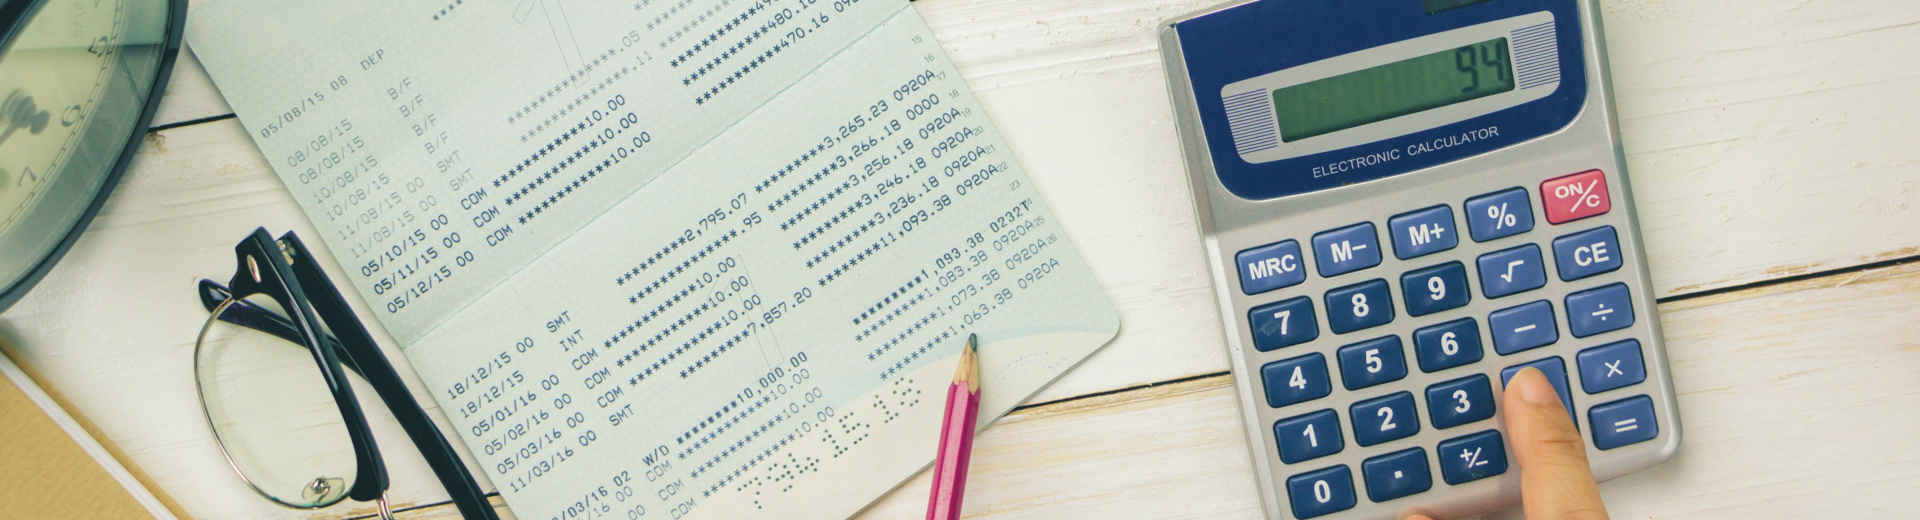 05/08/15 08 DEP
08/08/15 B/F
08/08/15 B/F
10/08/15 B/F
10/08/15 B/F
11/08/15 00 SMT ************.05
11/08/15 00 SMT ************.11
05/10/15 00 COM *********10.00
05/11/15 00 COM *********10.00 ********480.18
05/12/15 00 COM *********10.00 ********470.16
18/12/15 00 SMT *******2,795.07 *******3,265.23 0920A
18/12/15 INT ************.95 *******3,266.18 0000
05/01/16 00 COM *********10.00 *******3,256.18 0920A
05/02/16 00 COM *********10.00 *******3,246.18 0920A
05/03/16 00 COM *********10.00 *******3,236.18 0920A
11/03/16 00 SMT *******7,857.20 ******11,093.38 0920A
/03/16 02 W/D ******10,000.00 *******1,093.38 0232T
/16 00 COM *********10.00 *******1,083.38 0920A
00 COM *********10.00 *******1,073.38 0920A
COM *********10.00 *******1,063.38 0920A
794 15 18
94
ELECTRONIC CALCULATOR
MRC M− M+ % ON/C
7 8 9 √ CE
4 5 6 − ÷
1 2 3 ×
0 . +/− =
5
6
7